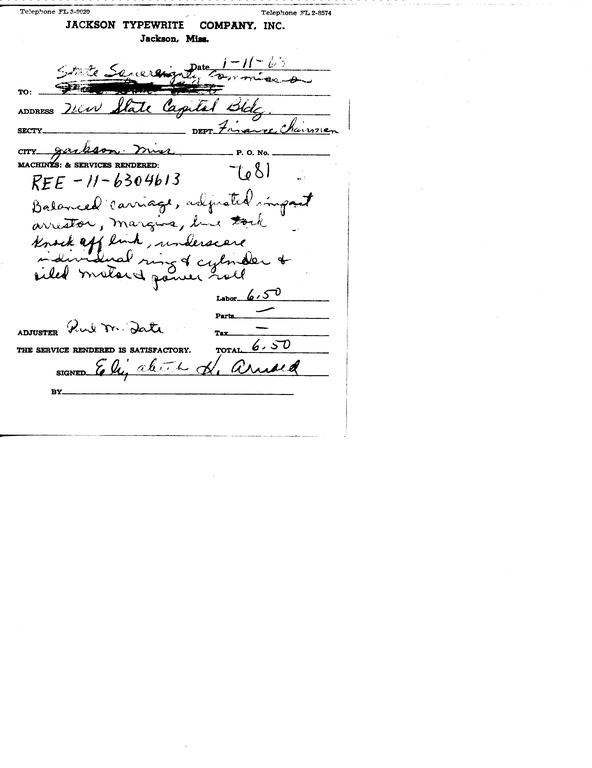 Telephone FL 3-9020 Telephone FL 2-8574
JACKSON TYPEWRITE COMPANY, INC.
Jackson, Miss.
Date 1-11-63
State Sovereignty Commission
TO:
ADDRESS New State Capitol Bldg.
SECTY. DEPT. Finance Chairman
CITY Jackson Miss P. O. No.
MACHINES: & SERVICES RENDERED: 7681
REE-11-6304613
Balanced carriage, adjusted impact
arrestor, margins, line lock
knock off link, underscore
individual ring & cylinder &
oiled motor & power roll
Labor 6.50
Parts —
ADJUSTER M. Tate Tax —
THE SERVICE RENDERED IS SATISFACTORY. TOTAL 6.50
SIGNED Elizabeth H.
BY